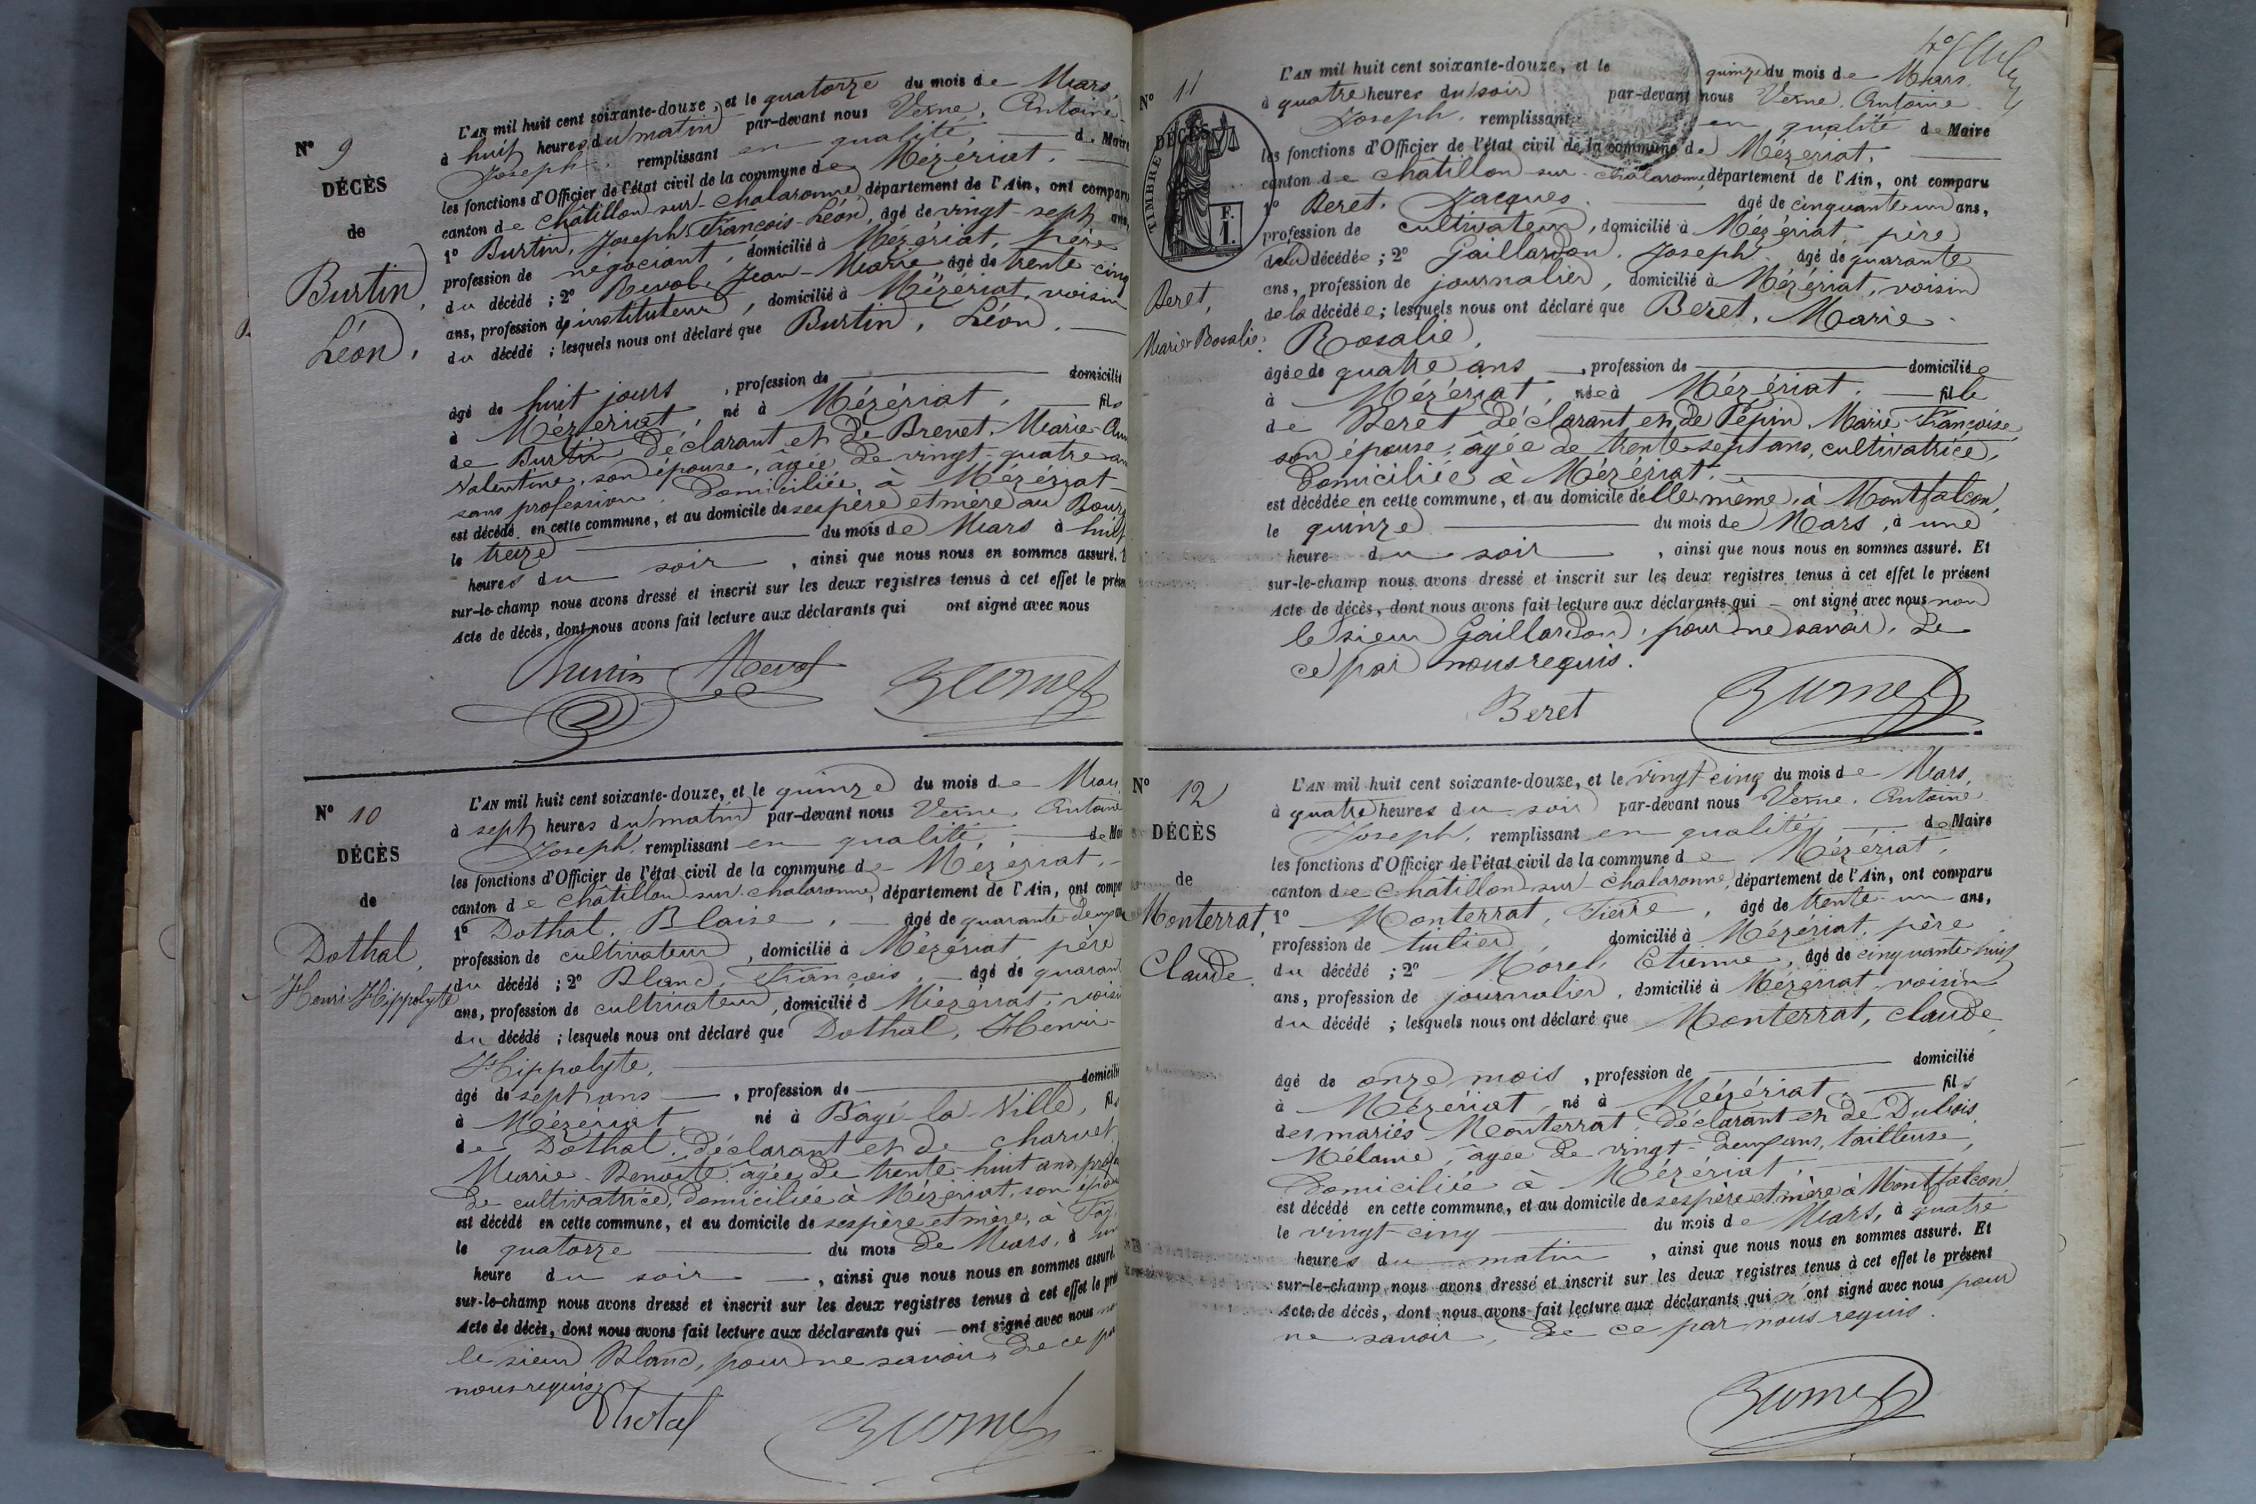 N° 9
DÉCÈS
de
Burtin,
Léon,
L'AN mil huit cent soixante-douze, et le quatorze du mois de Mars,
à huit heures du matin par-devant nous Verne, Antoine
Joseph remplissant en qualité, de Maire
les fonctions d'Officier de l'état civil de la commune de Mézériat,
canton de Châtillon-sur-Chalaronne, département de l'Ain, ont comparu
1° Burtin, Joseph François-Léon, âgé de vingt-sept ans,
profession de négociant, domicilié à Mézériat, père
du décédé ; 2° Revol, Jean-Marie âgé de trente-cinq
ans, profession d'instituteur, domicilié à Mézériat, voisin
du décédé ; lesquels nous ont déclaré que Burtin, Léon,
âgé de huit jours, profession de domicilié
à Mézériat, né à Mézériat, fils
de Burtin déclarant et de Brevet, Marie
Valentine, son épouse, âgée de vingt-quatre ans
sans profession, domiciliée à Mézériat
est décédé en cette commune, et au domicile de ses père et mère au Bourg
le treize du mois de Mars à huit
heures du soir, ainsi que nous nous en sommes assuré.
sur-le-champ nous avons dressé et inscrit sur les deux registres tenus à cet effet le présent
Acte de décès, dont nous avons fait lecture aux déclarants qui ont signé avec nous
Revol
N° 10
DÉCÈS
de
Dothal,
Henri-Hippolyte
L'AN mil huit cent soixante-douze, et le quinze du mois de Mars
à sept heures du matin par-devant nous Verne, Antoine
Joseph, remplissant en qualité, de Maire
les fonctions d'Officier de l'état civil de la commune de Mézériat,
canton de Châtillon-sur-Chalaronne, département de l'Ain, ont comparu
1° Dothal, Blaise, âgé de quarante-deux ans
profession de cultivateur, domicilié à Mézériat, père
du décédé ; 2° Blanc, François, âgé de quarante
ans, profession de cultivateur, domicilié à Mézériat, voisin
du décédé ; lesquels nous ont déclaré que Dothal, Henri-
Hippolyte,
âgé de sept ans, profession de domicilié
à Mézériat, né à Bâgé-la-Ville, fils
de Dothal, déclarant et de Charvet
Marie-Benoite âgée de trente-huit ans,
de cultivatrice, domiciliée à Mézériat, son
est décédé en cette commune, et au domicile de ses père et mère, à
le quatorze du mois de Mars, à une
heure du soir, ainsi que nous nous en sommes assuré.
sur-le-champ nous avons dressé et inscrit sur les deux registres tenus à cet effet le présent
Acte de décès, dont nous avons fait lecture aux déclarants qui ont signé avec nous non
le sieur Blanc, pour ne savoir, de ce par
nous requis.
Dhotal
N° 11
TIMBRE
DÉCÈS
F.
I.
Beret,
Marie-Rosalie.
L'AN mil huit cent soixante-douze, et le quinze du mois de Mars
à quatre heures du soir par-devant nous Verne, Antoine
Joseph, remplissant en qualité de Maire
les fonctions d'Officier de l'état civil de la commune de Mézériat,
canton de Châtillon-sur-Chalaronne, département de l'Ain, ont comparu
1° Beret, Jacques, âgé de cinquante-un ans,
profession de cultivateur, domicilié à Mézériat père
de la décédée ; 2° Gaillardon, Joseph âgé de quarante
ans, profession de journalier, domicilié à Mézériat, voisin
de la décédée ; lesquels nous ont déclaré que Beret, Marie-
Rosalie,
âgée de quatre ans, profession de domiciliée
à Mézériat, née à Mézériat, fille
de Beret déclarant et de Pépin, Marie-Françoise,
son épouse, âgée de trente-sept ans, cultivatrice,
domiciliée à Mézériat.
est décédée en cette commune, et au domicile d'elle-même, à Montfalcon,
le quinze du mois de Mars, à une
heure du soir, ainsi que nous nous en sommes assuré. Et
sur-le-champ nous avons dressé et inscrit sur les deux registres tenus à cet effet le présent
Acte de décès, dont nous avons fait lecture aux déclarants qui ont signé avec nous non
le sieur Gaillardon, pour ne savoir, de
ce par nous requis.
Beret
N° 12
DÉCÈS
de
Monterrat,
Claude.
L'AN mil huit cent soixante-douze, et le vingt-cinq du mois de Mars,
à quatre heures du soir par-devant nous Verne, Antoine
Joseph, remplissant en qualité de Maire
les fonctions d'Officier de l'état civil de la commune de Mézériat,
canton de Châtillon-sur-Chalaronne, département de l'Ain, ont comparu
1° Monterrat, Pierre, âgé de trente-un ans,
profession de tuilier, domicilié à Mézériat, père
du décédé ; 2° Morel, Etienne, âgé de cinquante-huit
ans, profession de journalier, domicilié à Mézériat voisin
du décédé ; lesquels nous ont déclaré que Monterrat, Claude,
âgé de onze mois, profession de domicilié
à Mézériat, né à Mézériat, fils
des mariés Monterrat déclarant et de Dubois,
Mélanie, âgée de vingt-deux ans, tailleuse,
domiciliée à Mézériat.
est décédé en cette commune, et au domicile de ses père et mère à Montfalcon
le vingt-cinq du mois de Mars, à quatre
heures du matin, ainsi que nous nous en sommes assuré. Et
sur-le-champ nous avons dressé et inscrit sur les deux registres tenus à cet effet le présent
Acte de décès, dont nous avons fait lecture aux déclarants qui n'ont signé avec nous pour
ne savoir, de ce par nous requis.